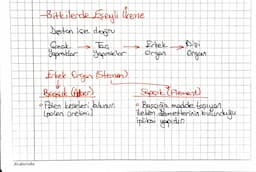 - Bitkilerde Eşeyli Üreme
Dıştan içe doğru
Çanak → Taç → Erkek → Dişi
Yapraklar yapraklar Organ Organ
Erkek Organ (Stamen)
Başçık (Anter) Sapçık (Flament)
• Polen keseleri bulunur. • Başçığa madde taşıyan
(polen üretimi) iletim demetlerinin bulunduğu
ipliksi yapıdır.